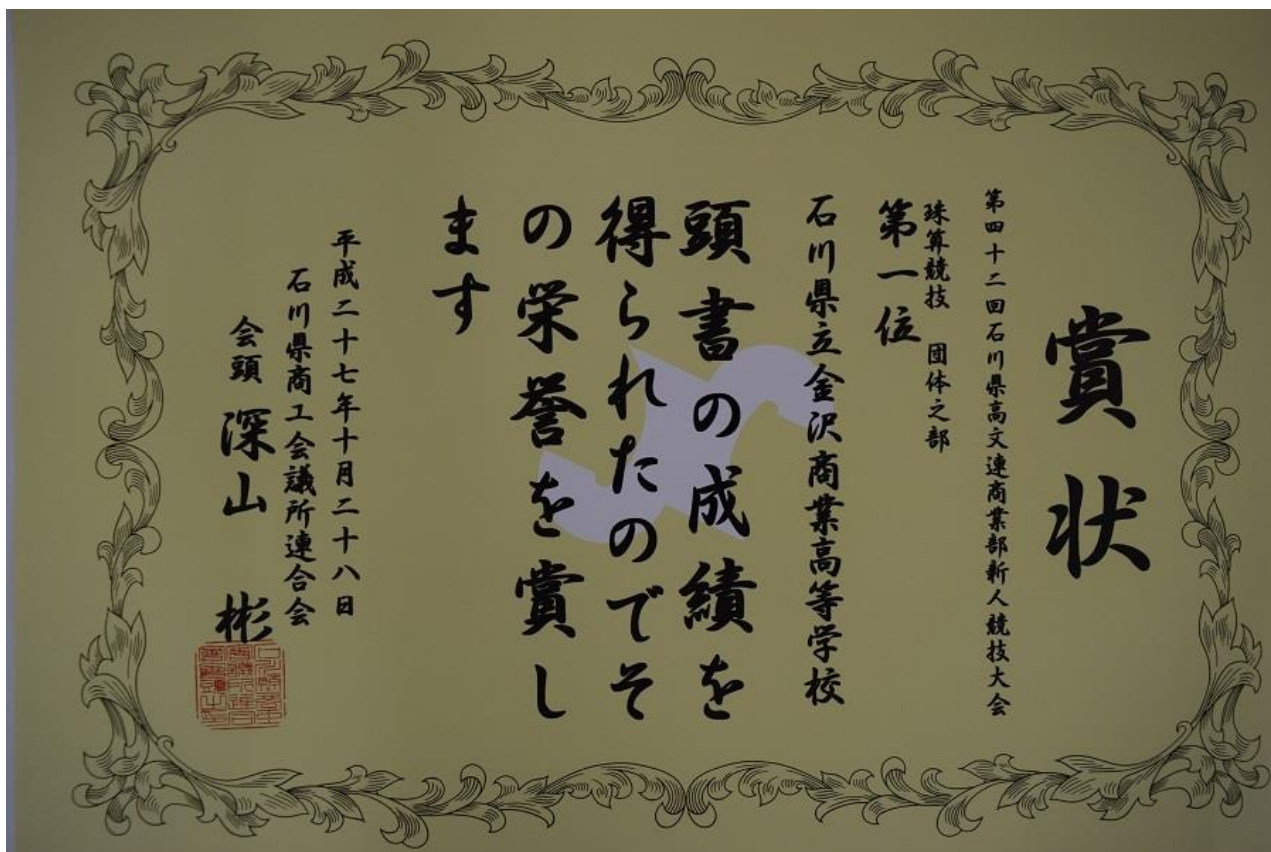 賞状
第四十二回石川県高文連商業部新人競技大会
珠算競技 団体之部
第一位
石川県立金沢商業高等学校
頭書の成績を
得られたのでそ
の栄誉を賞し
ます
平成二十七年十月二十八日
石川県商工会議所連合会
会頭 深山 彬